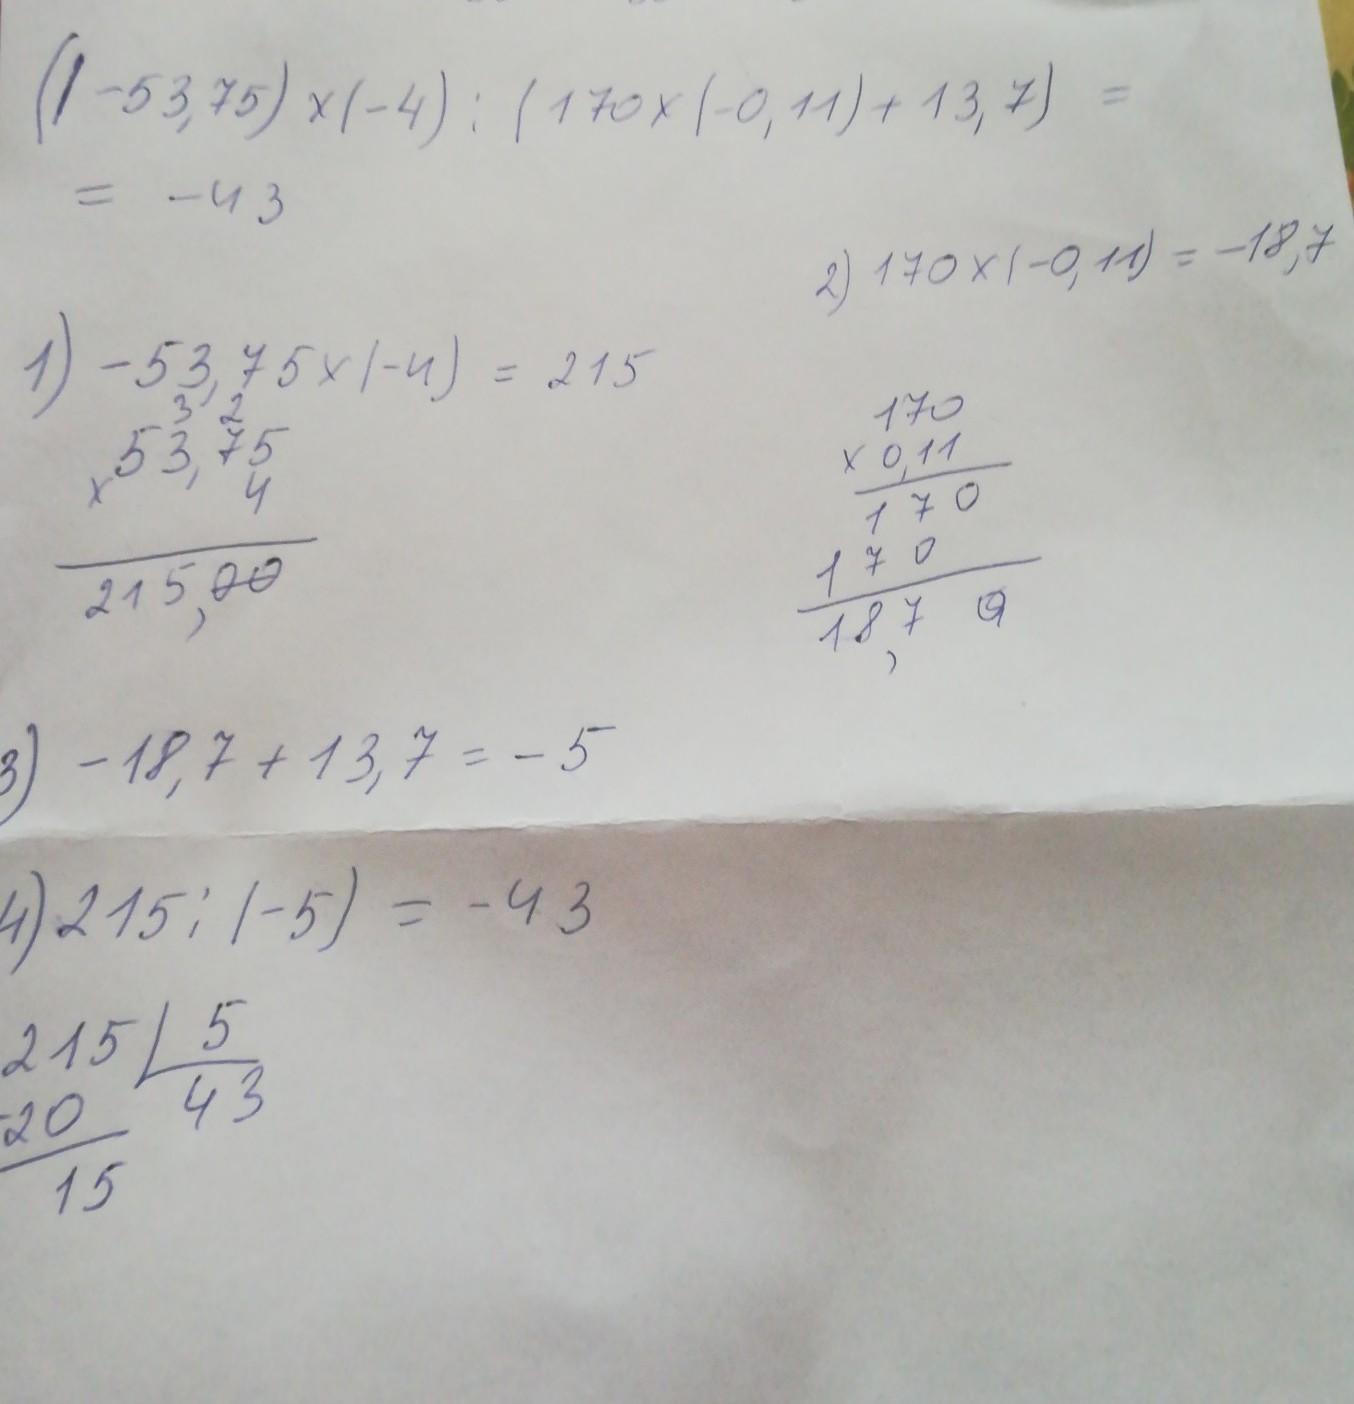 (-53,75)x(-4):(170x(-0,11)+13,7)=
= -43
2) 170x(-0,11) = -18,7
1) -53,75x(-4) = 215
3 2
53,75
x 4
215,00
170
x 0,11
170
170
18,70
3) -18,7+13,7=-5
4) 215:(-5) = -43
215 5
-20 43
15